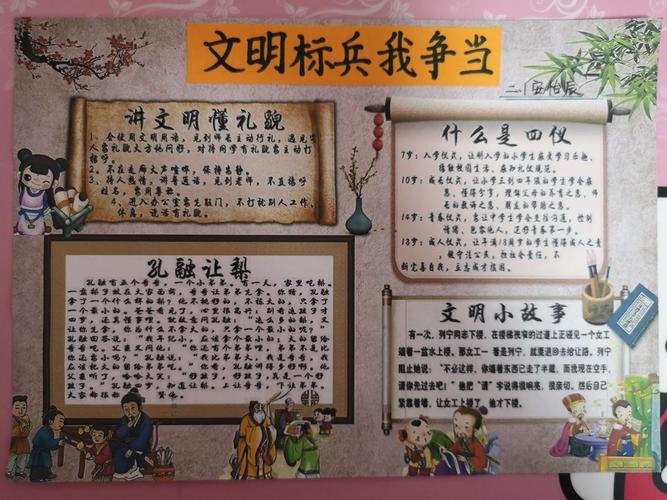 文明标兵我争当
二、1 安怡辰
讲文明懂礼貌
1、会使用文明用语，见到师长主动行礼，遇见客
人要礼貌大方地问好，对待同学有礼貌要主动打
招呼。
2、不在走廊大声喧哗，保持安静。
3、待人热情，讲普通话，见到老师，不直接呼
姓名，要用尊称。
4、进入办公室要先敲门，不打扰别人工作、
休息，说话有礼貌。
什么是四仪
7岁：入学仪式，让刚入学的小学生感受学习乐趣、
接触校园生活、感知礼仪规范。
10岁：成长仪式，让小学三到四年级的学生学会感
恩，懂得分享，理解父母的养育之恩，师
长的教诲之恩，朋友的帮助之恩。
14岁：青春仪式，要让中学生学会交往沟通，控制
情绪，包容他人，迈好青春第一步。
18岁：成人仪式，让年满18周岁的学生懂得成人之责
，做守法公民，担社会责任，不
断完善自我，立志成才报国。
孔融让梨
孔融有五个哥哥，一个小弟弟。有一天，家里吃梨。
一盘梨子放在大家面前，哥哥让弟弟先拿。你猜，孔融
拿了一个什么样的梨？他不挑好的，不拣大的，只拿了
一个最小的。爸爸看见了，心里很高兴：别看这孩子才
四岁，还真懂事哩。就故意问孔融：“这么多的梨，又
让你先拿，你为什么不拿大的，只拿一个最小的呢？”
孔融回答说：“我年纪小，应该拿个最小的；大的留给
哥哥吃。”父亲又问他：“你还有个弟弟哩，弟弟不是比
你还要小吗？”孔融说：“我比弟弟大，我是哥哥，我
应该把大的留给弟弟吃。”你看，孔融讲得多好啊。他
父亲听了，哈哈大笑：“好孩子，好孩子，真是一个好
孩子。”孔融四岁，知道让梨。上让哥哥，下让弟弟。
大家都很称赞他。
文明小故事
有一次，列宁同志下楼，在楼梯狭窄的过道上正碰见一个女工
端着一盆水上楼。那女工一看是列宁，就要退回去给让路。列宁
阻止她说：“不必这样，你端着东西已走了半截，而我现在空手，
请你先过去吧！”他把“请”字说得很响亮，很亲切。然后自己
紧靠着墙，让女工上楼了，他才下楼。